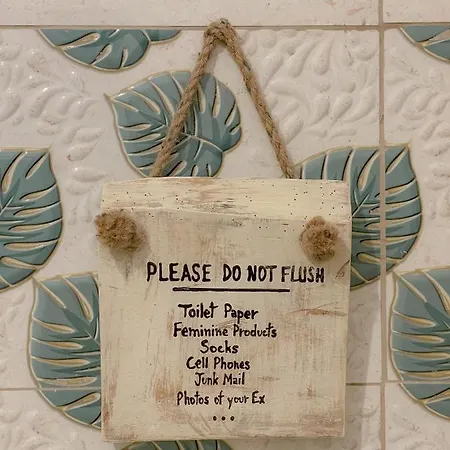 PLEASE DO NOT FLUSH
Toilet Paper
Feminine Products
Socks
Cell Phones
Junk Mail
Photos of your Ex
...